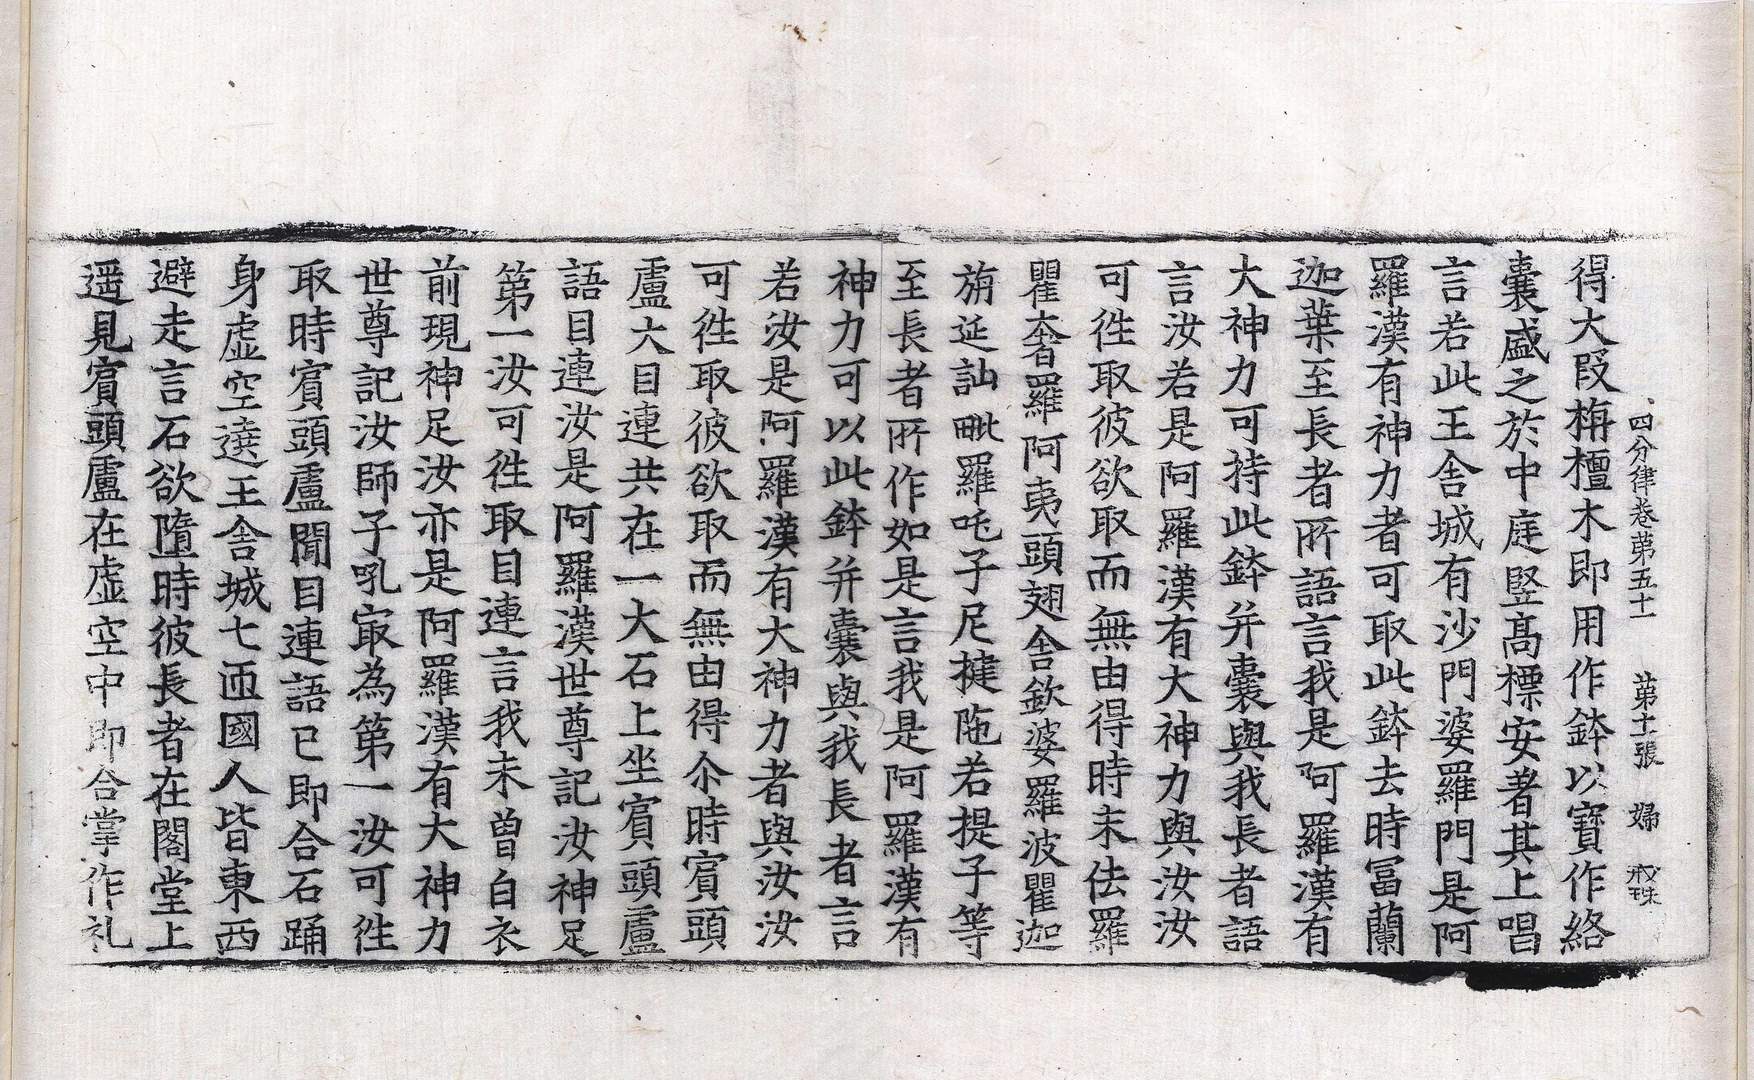 四分律卷第五十一 第十二張 婦 戒珠
得大段栴檀木即用作鉢以寶作絡
囊盛之於中庭竪高標安著其上唱
言若此王舍城有沙門婆羅門是阿
羅漢有神力者可取此鉢去時冨蘭
迦葉至長者所語言我是阿羅漢有
大神力可持此鉢并囊與我長者語
言汝若是阿羅漢有大神力與汝汝
可徃取彼欲取而無由得時末佉羅
瞿奢羅阿夷頭翅舍欽婆羅波瞿迦
旃延訕毗羅吒子尼揵陁若提子等
至長者所作如是言我是阿羅漢有
神力可以此鉢并囊與我長者言
若汝是阿羅漢有大神力者與汝汝
可徃取彼欲取而無由得尒時賓頭
盧大目連共在一大石上坐賓頭盧
語目連汝是阿羅漢世尊記汝神足
第一汝可徃取目連言我未曾白衣
前現神足汝亦是阿羅漢有大神力
世尊記汝師子吼㝡為第一汝可徃
取時賓頭盧聞目連語已即合石踊
身虛空遶王舍城七匝國人皆東西
避走言石欲墮時彼長者在閣堂上
遥見賓頭盧在虛空中即合掌作礼